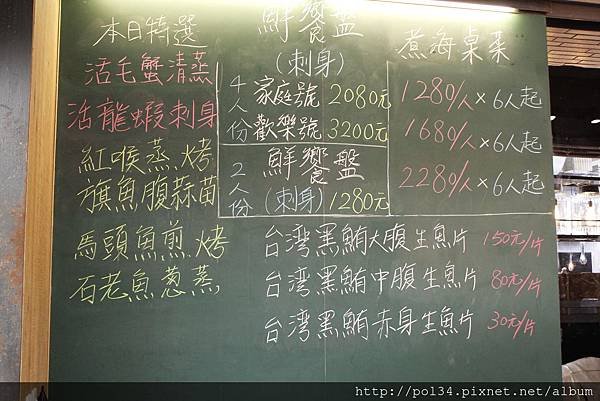 本日特選
活毛蟹清蒸
活龍蝦刺身
紅喉蒸.烤
旗魚腹蒜苗
馬頭魚煎.烤
石老魚蔥蒸
鮮饗盤
(刺身)
4人份 家庭號 2080元
歡樂號 3200元
2人份 鮮饗盤
(刺身) 1280元
煮海桌菜
1280/人×6人起
1680/人×6人起
2280/人×6人起
台灣黑鮪大腹生魚片 150元/片
台灣黑鮪中腹生魚片 80元/片
台灣黑鮪赤身生魚片 30元/片
http://pol34.pixnet.net/album